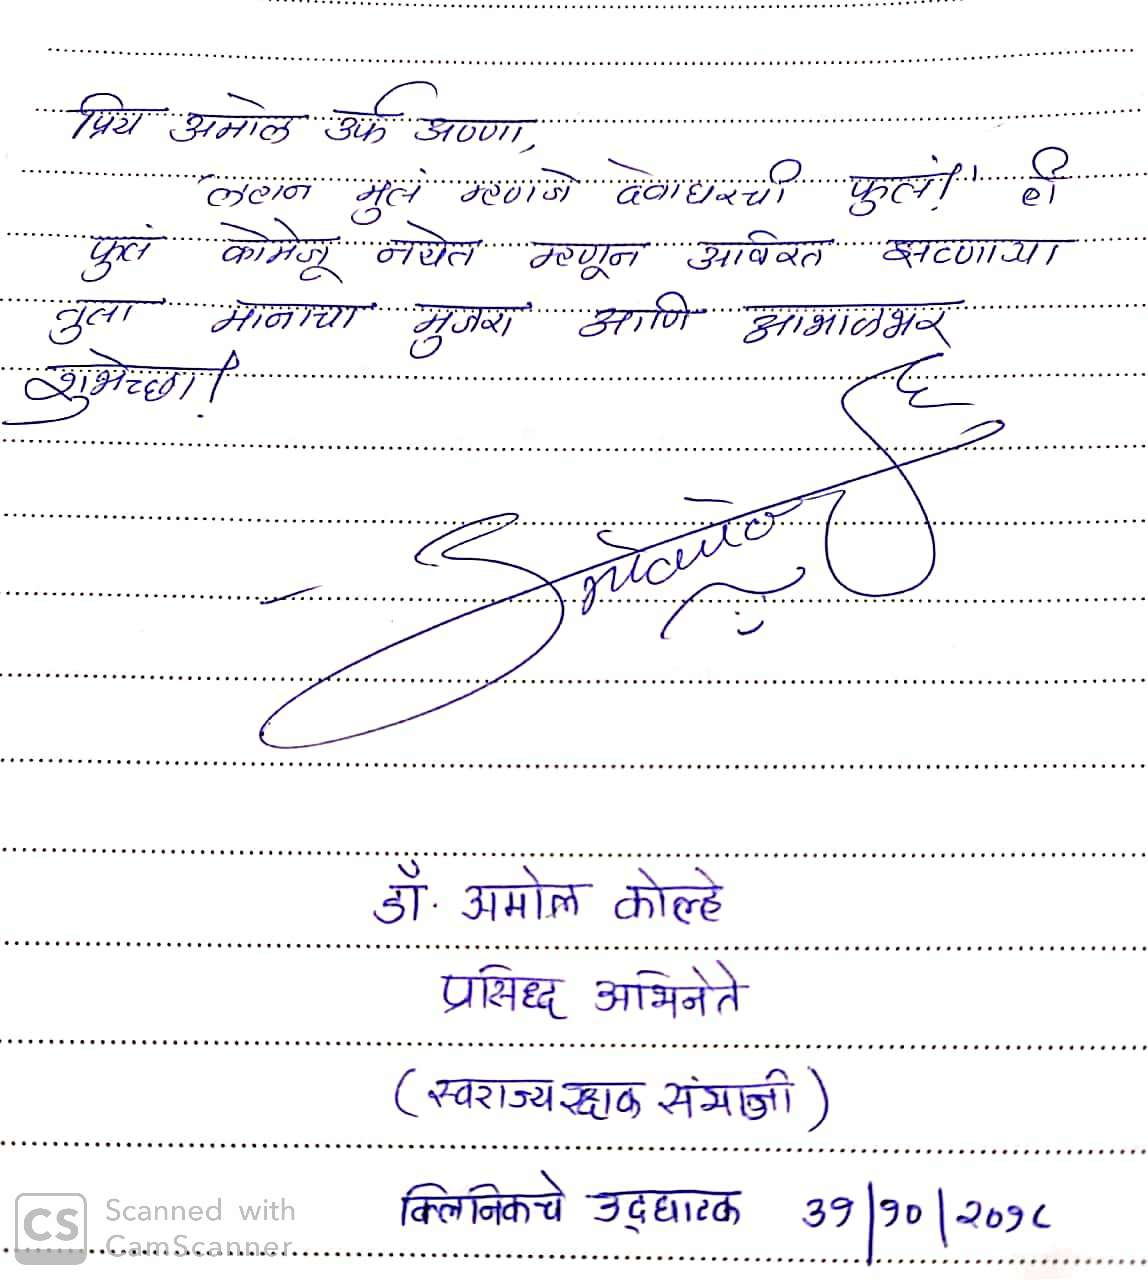 प्रिय अमोल उर्फ अण्णा,
'लहान मुलं म्हणजे देवाघरची फुलं!' ही
फुलं कोमेजू नयेत म्हणून अविरत झटणाऱ्या
तुला मानाचा मुजरा आणि आभाळभर
शुभेच्छा!
डॉ. अमोल कोल्हे
प्रसिध्द अभिनेते
(स्वराज्यरक्षक संभाजी)
क्लिनिकचे उद्घाटक ३१/१०/२०१८
CS Scanned with
CamScanner